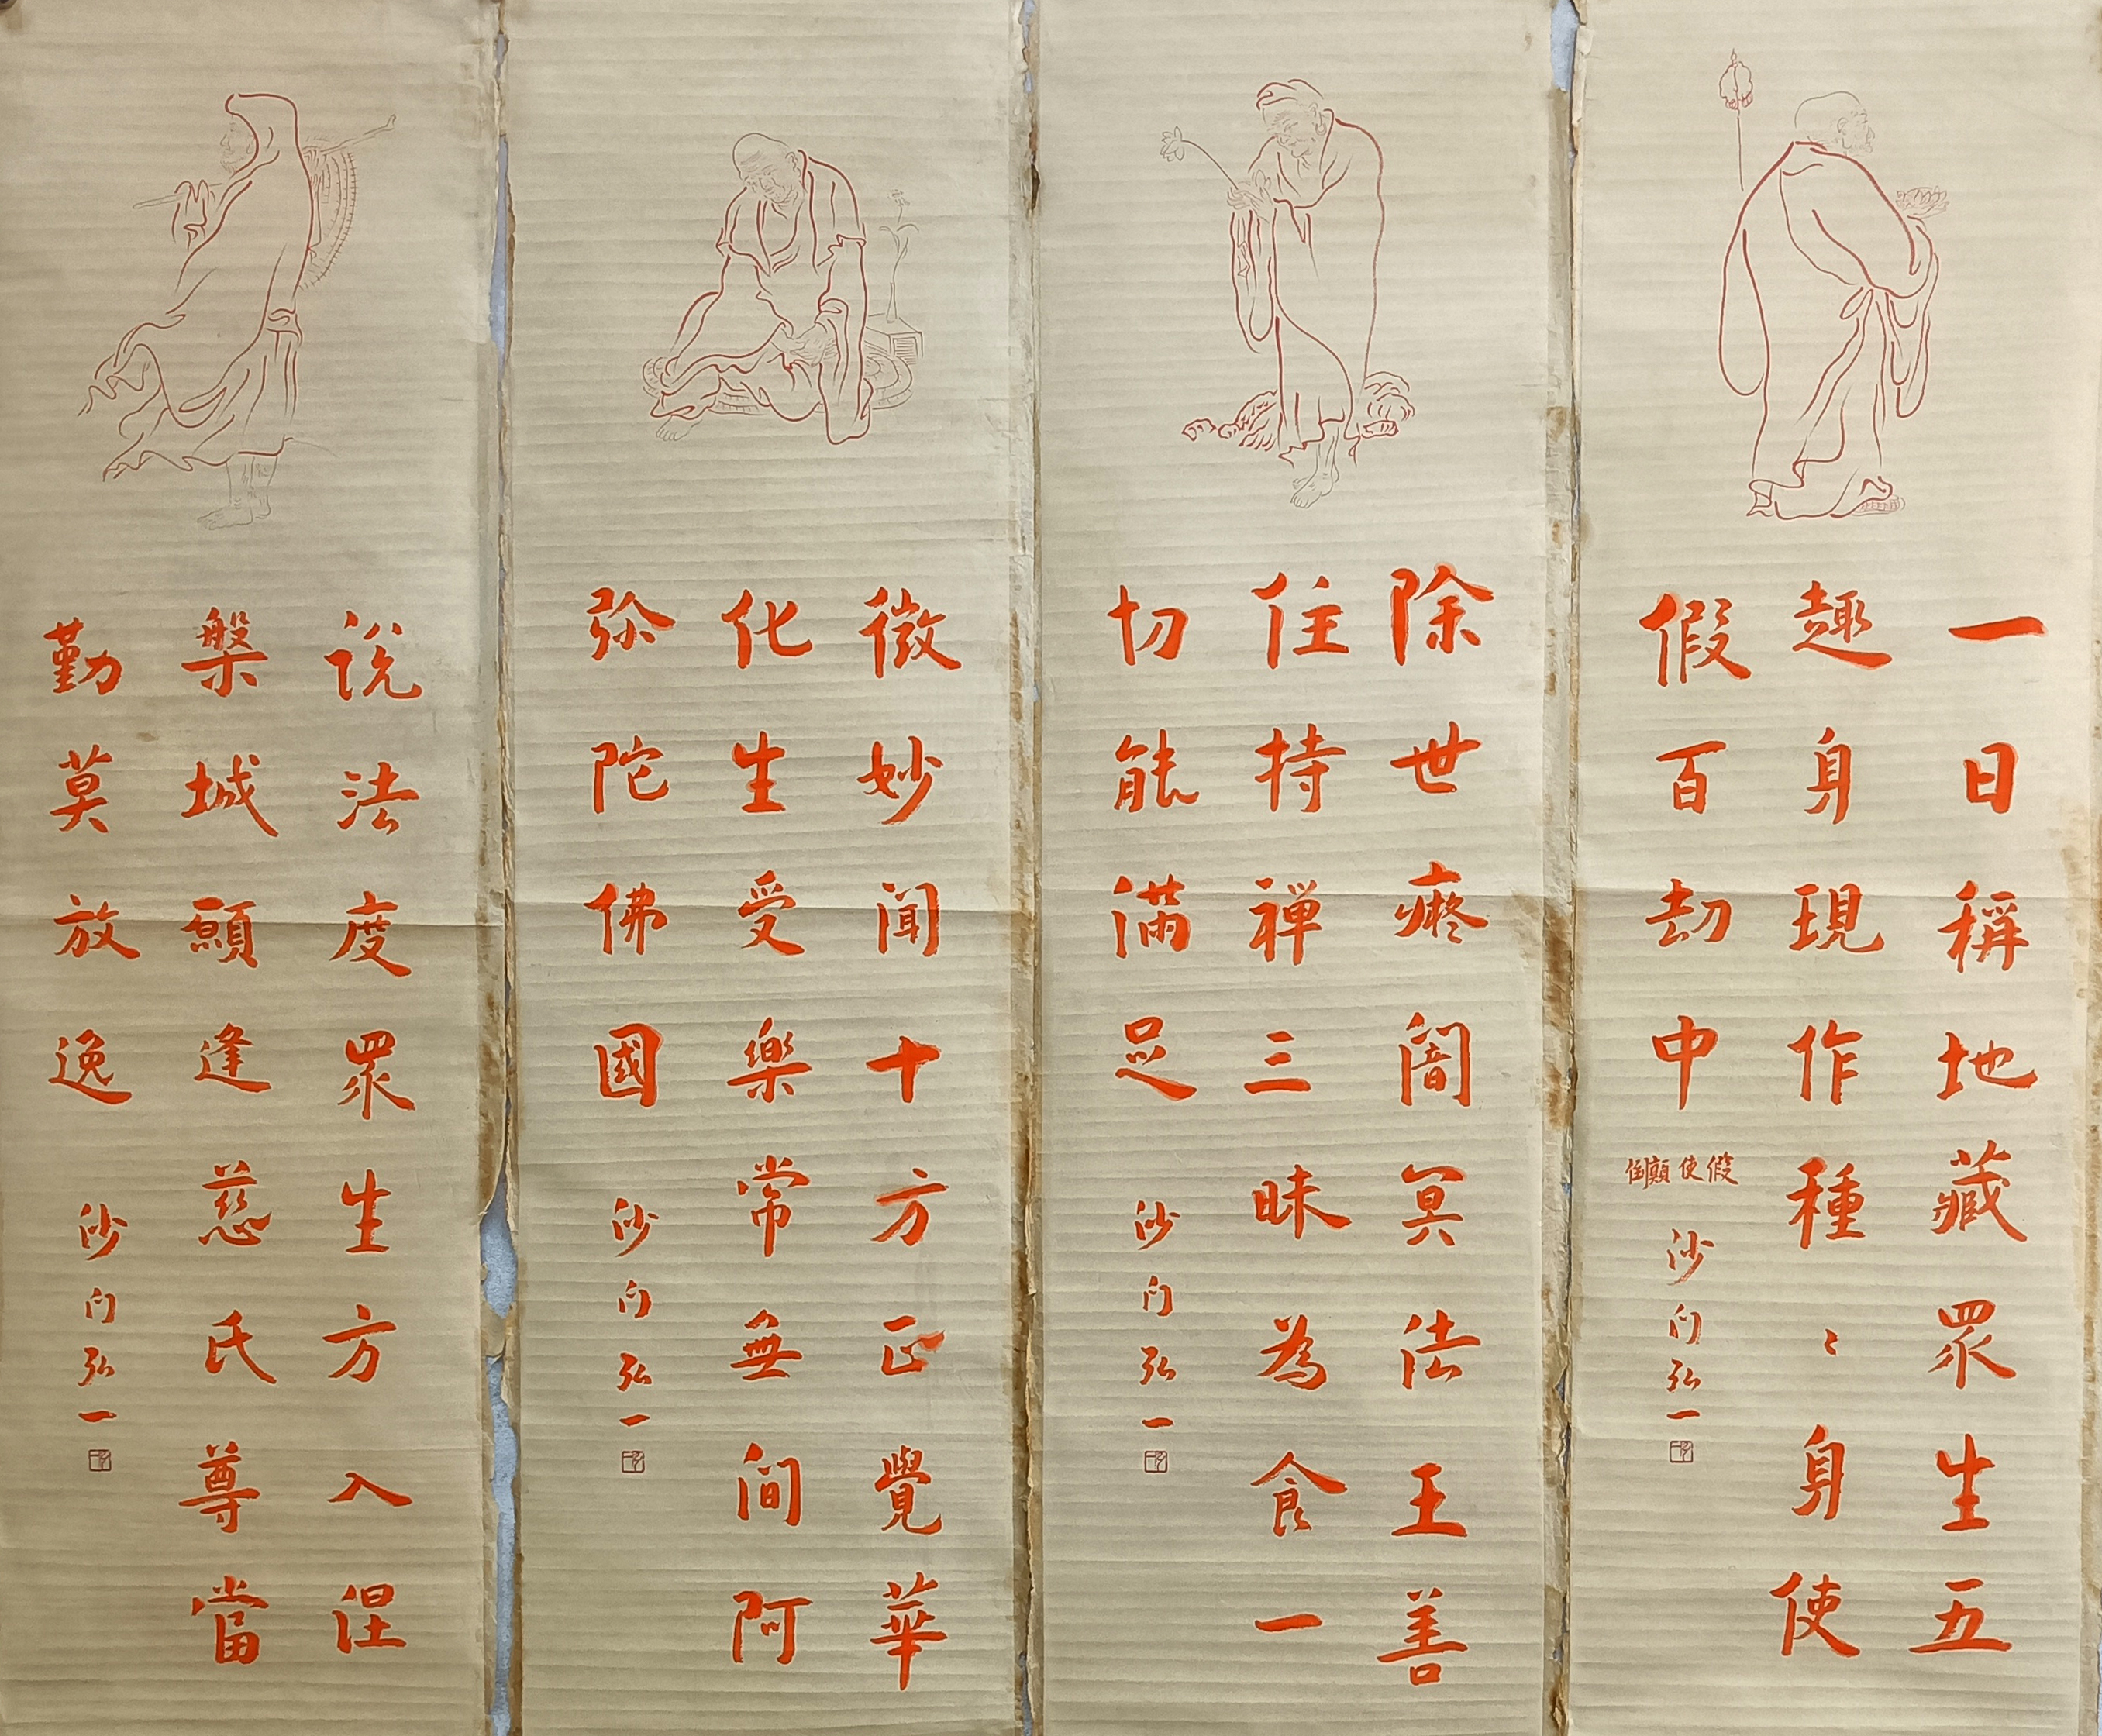 一日稱地藏眾生五
趣身現作種〻身使
假百劫中
假使顛倒
沙门弘一
除世癡闇冥法王善
住持禅三昧為食一
切能滿足
沙门弘一
微妙闻十方正覺華
化生受樂常無间阿
弥陀佛國
沙门弘一
說法度眾生方入涅
槃城願逢慈氏尊當
勤莫放逸
沙门弘一